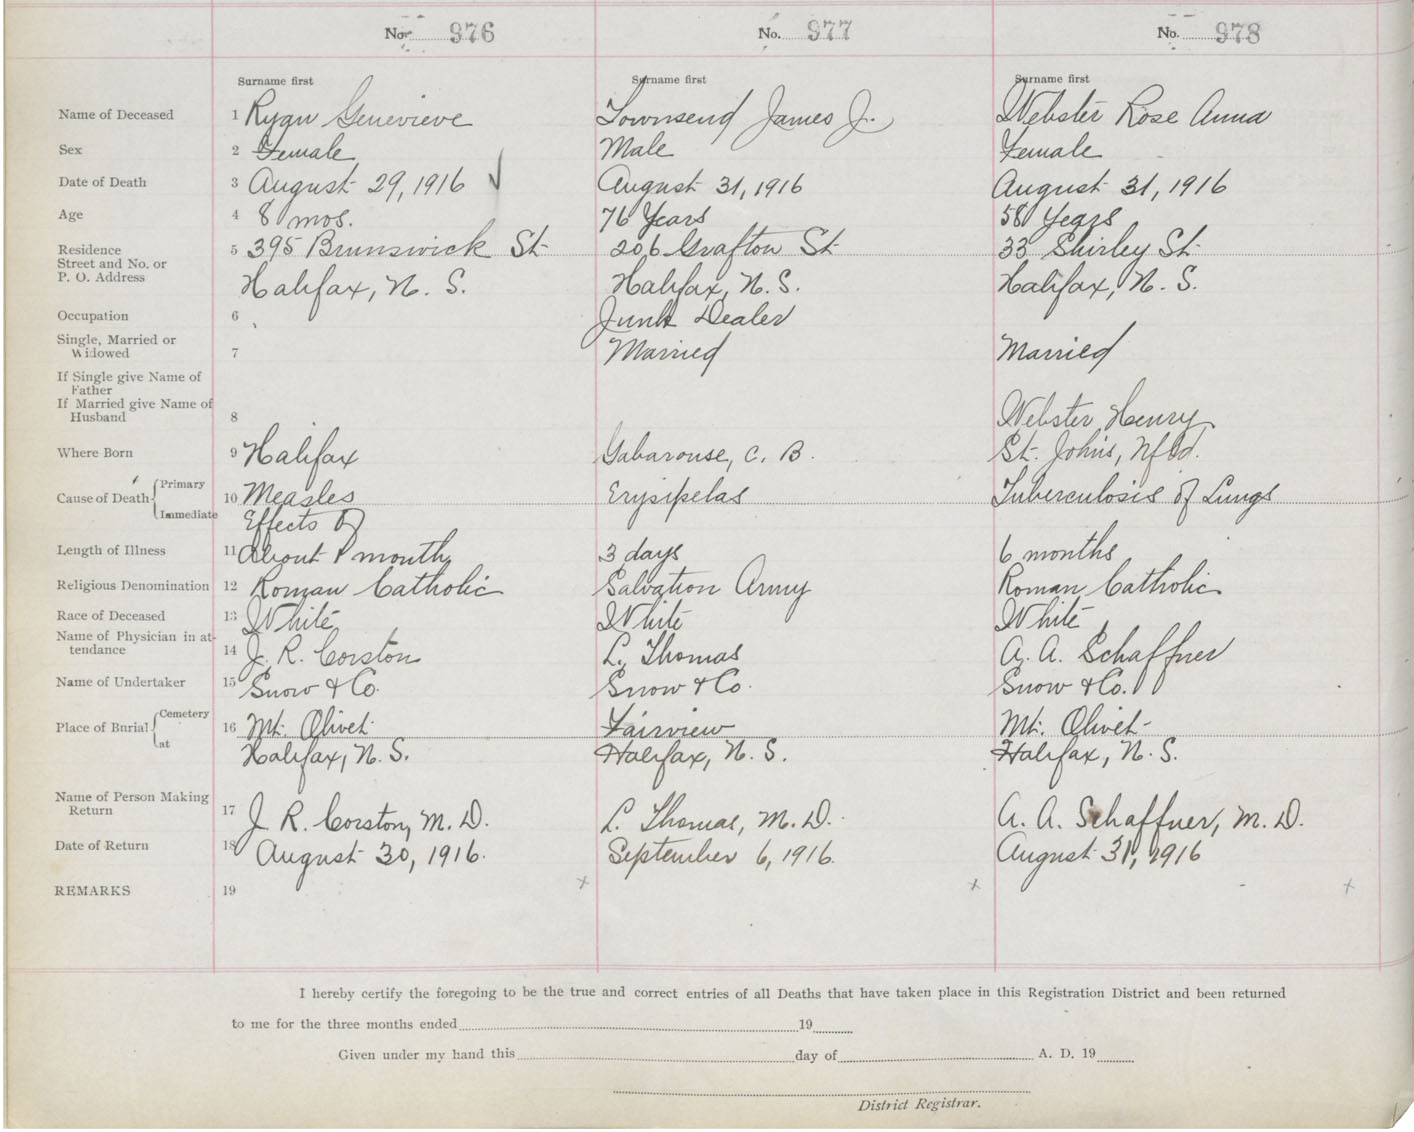 No. 976 No. 977 No. 978
Surname first Surname first Surname first
Name of Deceased 1 Ryan Genevieve Townsend James J. Webster Rose Anna
Sex 2 Female Male Female
Date of Death 3 August 29, 1916 August 31, 1916 August 31, 1916
Age 4 8 mos. 76 Years 58 Years
Residence 5 395 Brunswick St 206 Grafton St 33 Shirley St
Street and No. or
P. O. Address Halifax, N. S. Halifax, N. S. Halifax, N. S.
Occupation 6 Junk Dealer
Single, Married or
Widowed 7 Married Married
If Single give Name of
Father
If Married give Name of
Husband 8 Webster Henry
Where Born 9 Halifax Gabarouse, C. B. St. John's, Nfld.
Cause of Death Primary 10 Measles Erysipelas Tuberculosis of Lungs
Immediate Effects of
Length of Illness 11 About 1 month 3 days 6 months
Religious Denomination 12 Roman Catholic Salvation Army Roman Catholic
Race of Deceased 13 White White White
Name of Physician in at-
tendance 14 J. R. Corston L. Thomas A. A. Schaffner
Name of Undertaker 15 Snow & Co. Snow & Co. Snow & Co.
Place of Burial Cemetery 16 Mt. Olivet Fairview Mt. Olivet
at Halifax, N. S. Halifax, N. S. Halifax, N. S.
Name of Person Making
Return 17 J. R. Corston, M. D. L. Thomas, M. D. A. A. Schaffner, M. D.
Date of Return 18 August 30, 1916. September 6, 1916. August 31, 1916
REMARKS 19 x x x
I hereby certify the foregoing to be the true and correct entries of all Deaths that have taken place in this Registration District and been returned
to me for the three months ended 19
Given under my hand this day of A. D. 19
District Registrar.